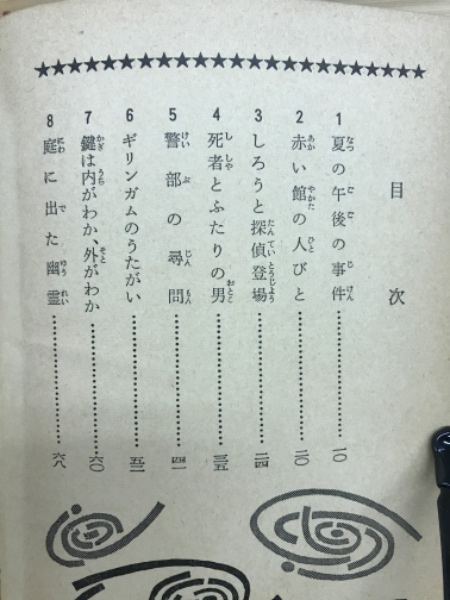 目次
1 夏の午後の事件 一〇
2 赤い館の人びと 二〇
3 しろうと探偵登場 二四
4 死者とふたりの男 三五
5 警部の尋問 四一
6 ギリンガムのうたがい 五二
7 鍵は内がわか、外がわか 六〇
8 庭に出た幽霊 六八